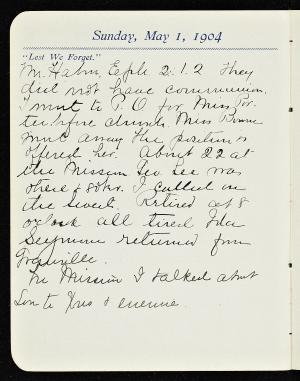 Sunday, May 1, 1904
"Lest We Forget."
Mr. Hahn, Eph. 2:1.2 They
did not have communion.
I went to P.O for Miss Por-
ter before church. Miss
away the position
offered her. About 22 at
the Mission Geo Lee was
there I called on
the Sweets. Retired at 8
o'clock all tired Ida
Seymour returned from
Granville.
In Mission I talked about
to